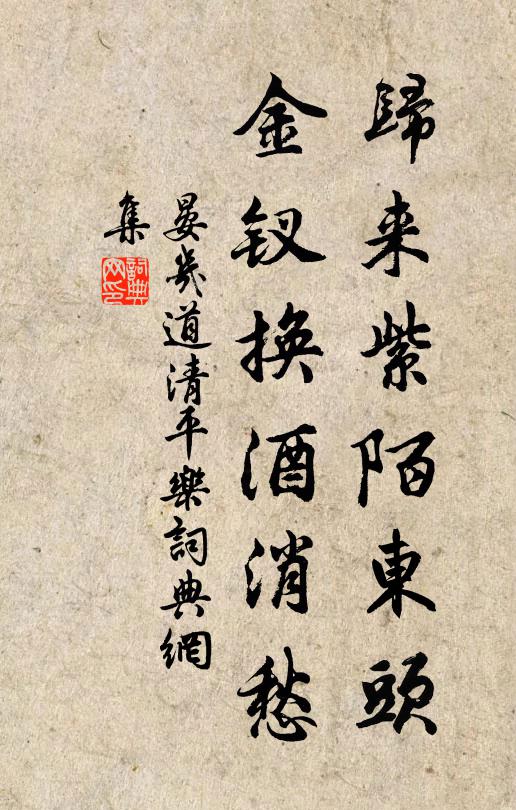 歸来紫陌東頭
金钗換酒消愁
晏幾道清平樂詞典網
集
詞典网印